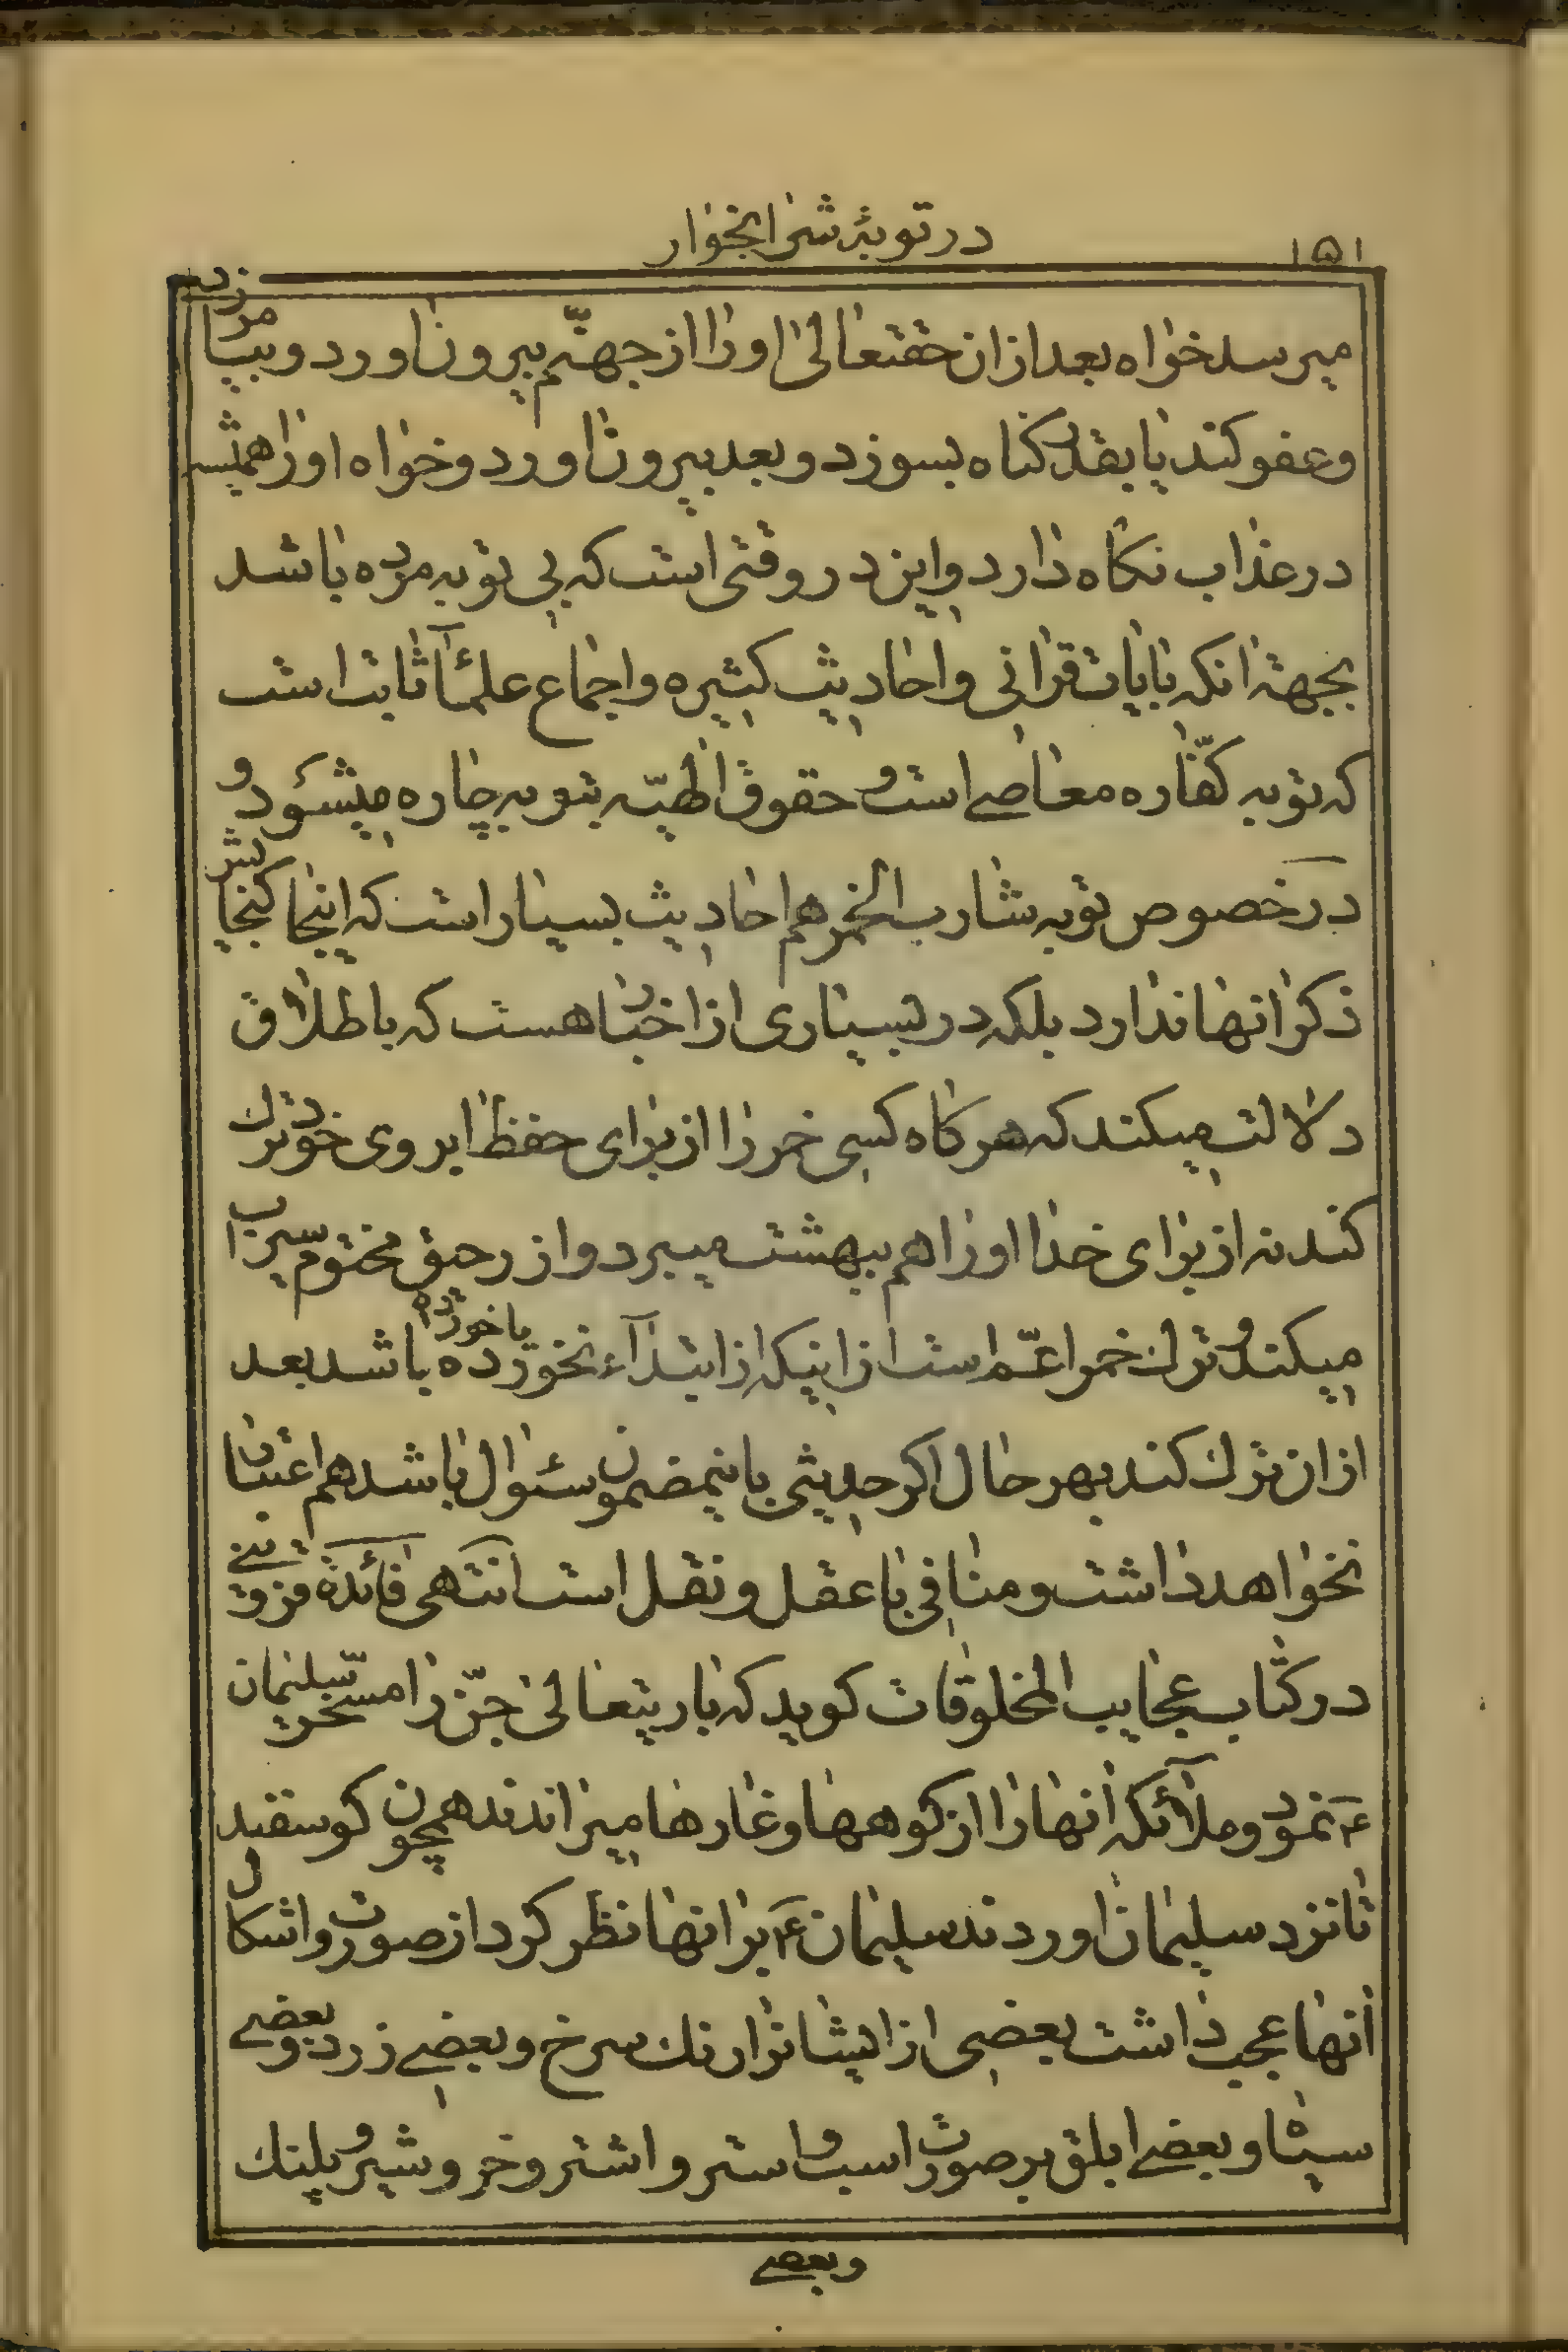 ۱۵۱
در توبهٔ شرابخوار
میرسد خواه بعد از ان حقتعالی او را از جهنّم بیرون اورد و بیامرزد
و عفو کند یا بقدر کناه بسوزد و بعد بیرون اورد و خواه او را همیشه
در عذاب نکاه دارد و این در وقتی است که بی توبه مرده باشد
بجهة انکه بایات قرانی و احادیث کثیره و اجماع علمآء ثابت است
که توبه کفّاره معاصے است و حقوق الٰهیّه بتوبه چاره میشود و
در خصوص توبه شارب الخمر هم احادیث بسیار است که اینجا کنجایش
ذکر انها ندارد بلکه در بسیاری از اخبار هست که باطلاق
دلالت میکند که هر کاه کسی خمر را از برای حفظ ابروی خود ترك
کند نه از برای خدا او را هم ببهشت میبرد و از رحیق مختوم سیراب
میکند و ترك خمر اعمّ است از اینکه از ابتدآء نخورده باشد یا خورده بعد
از ان ترك کند بهر حال اکر حدیثی باینمضمون سئوال باشد هم اعتبار
نخواهد داشت و منافی با عقل و نقل است انتهی فائدة قزوینے
در کتاب عجایب المخلوقات کوید که باریتعالی جنّ را مسخّر سلیمان
ع نمود و ملآئکه انها را از کوهها و غارها میراندند همچون کوسفند
تا نزد سلیمان اوردند سلیمان ع بر انها نظر کرد از صورت و اشکال
انها عجب داشت بعضی از ایشانرا رنك سرخ و بعضے زرد و بعضے
سیاه و بعضے ابلق بر صورت اسب و استر و اشتر و خر و شیر و پلنك
و بعضے